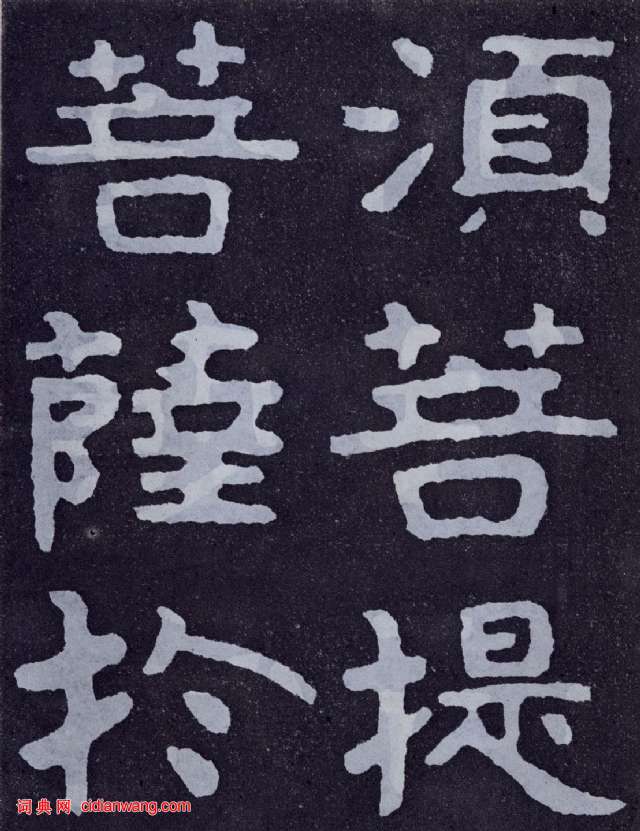 湏菩提
菩薩於
词典网 cidianwang.com